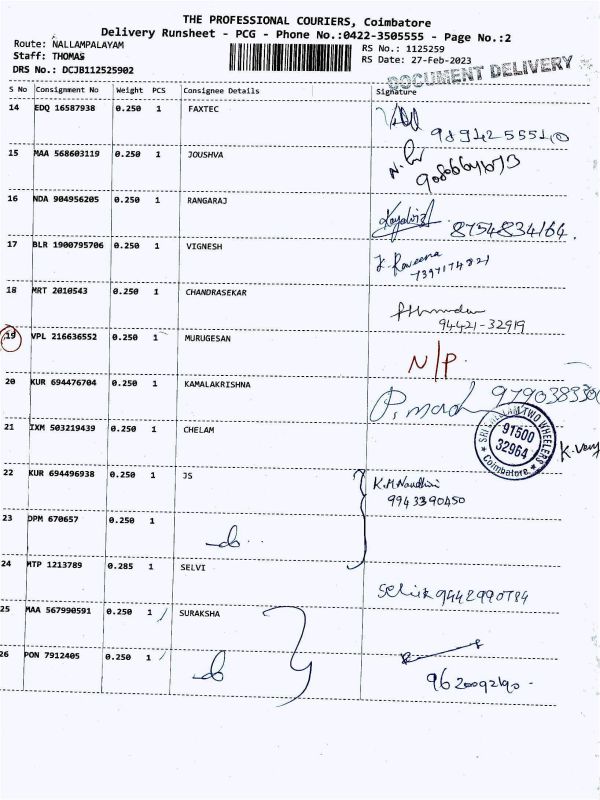 THE PROFESSIONAL COURIERS, Coimbatore
Delivery Runsheet - PCG - Phone No.:0422-3505555 - Page No.:2
Route: NALLAMPALAYAM
RS No.: 1125259
Staff: THOMAS
RS Date: 27-Feb-2023
DRS No.: DCJB112525902
DOCUMENT DELIVERY
S No Consignment No Weight PCS Consignee Details Signature
14 EDQ 16587938 0.250 1 FAXTEC
9894255510
15 MAA 568603119 0.250 1 JOUSHVA
16 NDA 904956205 0.250 1 RANGARAJ
8754834164.
17 BLR 1900795706 0.250 1 VIGNESH
K. Raveena
7397174821
18 MRT 2010543 0.250 1 CHANDRASEKAR
94421-32919
19 VPL 216636552 0.250 1 MURUGESAN
N/P.
20 KUR 694476704 0.250 1 KAMALAKRISHNA
979038330
21 IXM 503219439 0.250 1 CHELAM
SRI VELLAM TWO WHEELERS
91500
32964
Coimbatore.
22 KUR 694496938 0.250 1 JS
K.M Nandhini
9943390450
23 DPM 670657 0.250 1
do..
24 MTP 1213789 0.285 1 SELVI
9442990784
25 MAA 567990591 0.250 1 SURAKSHA
26 PON 7912405 0.250 1
do